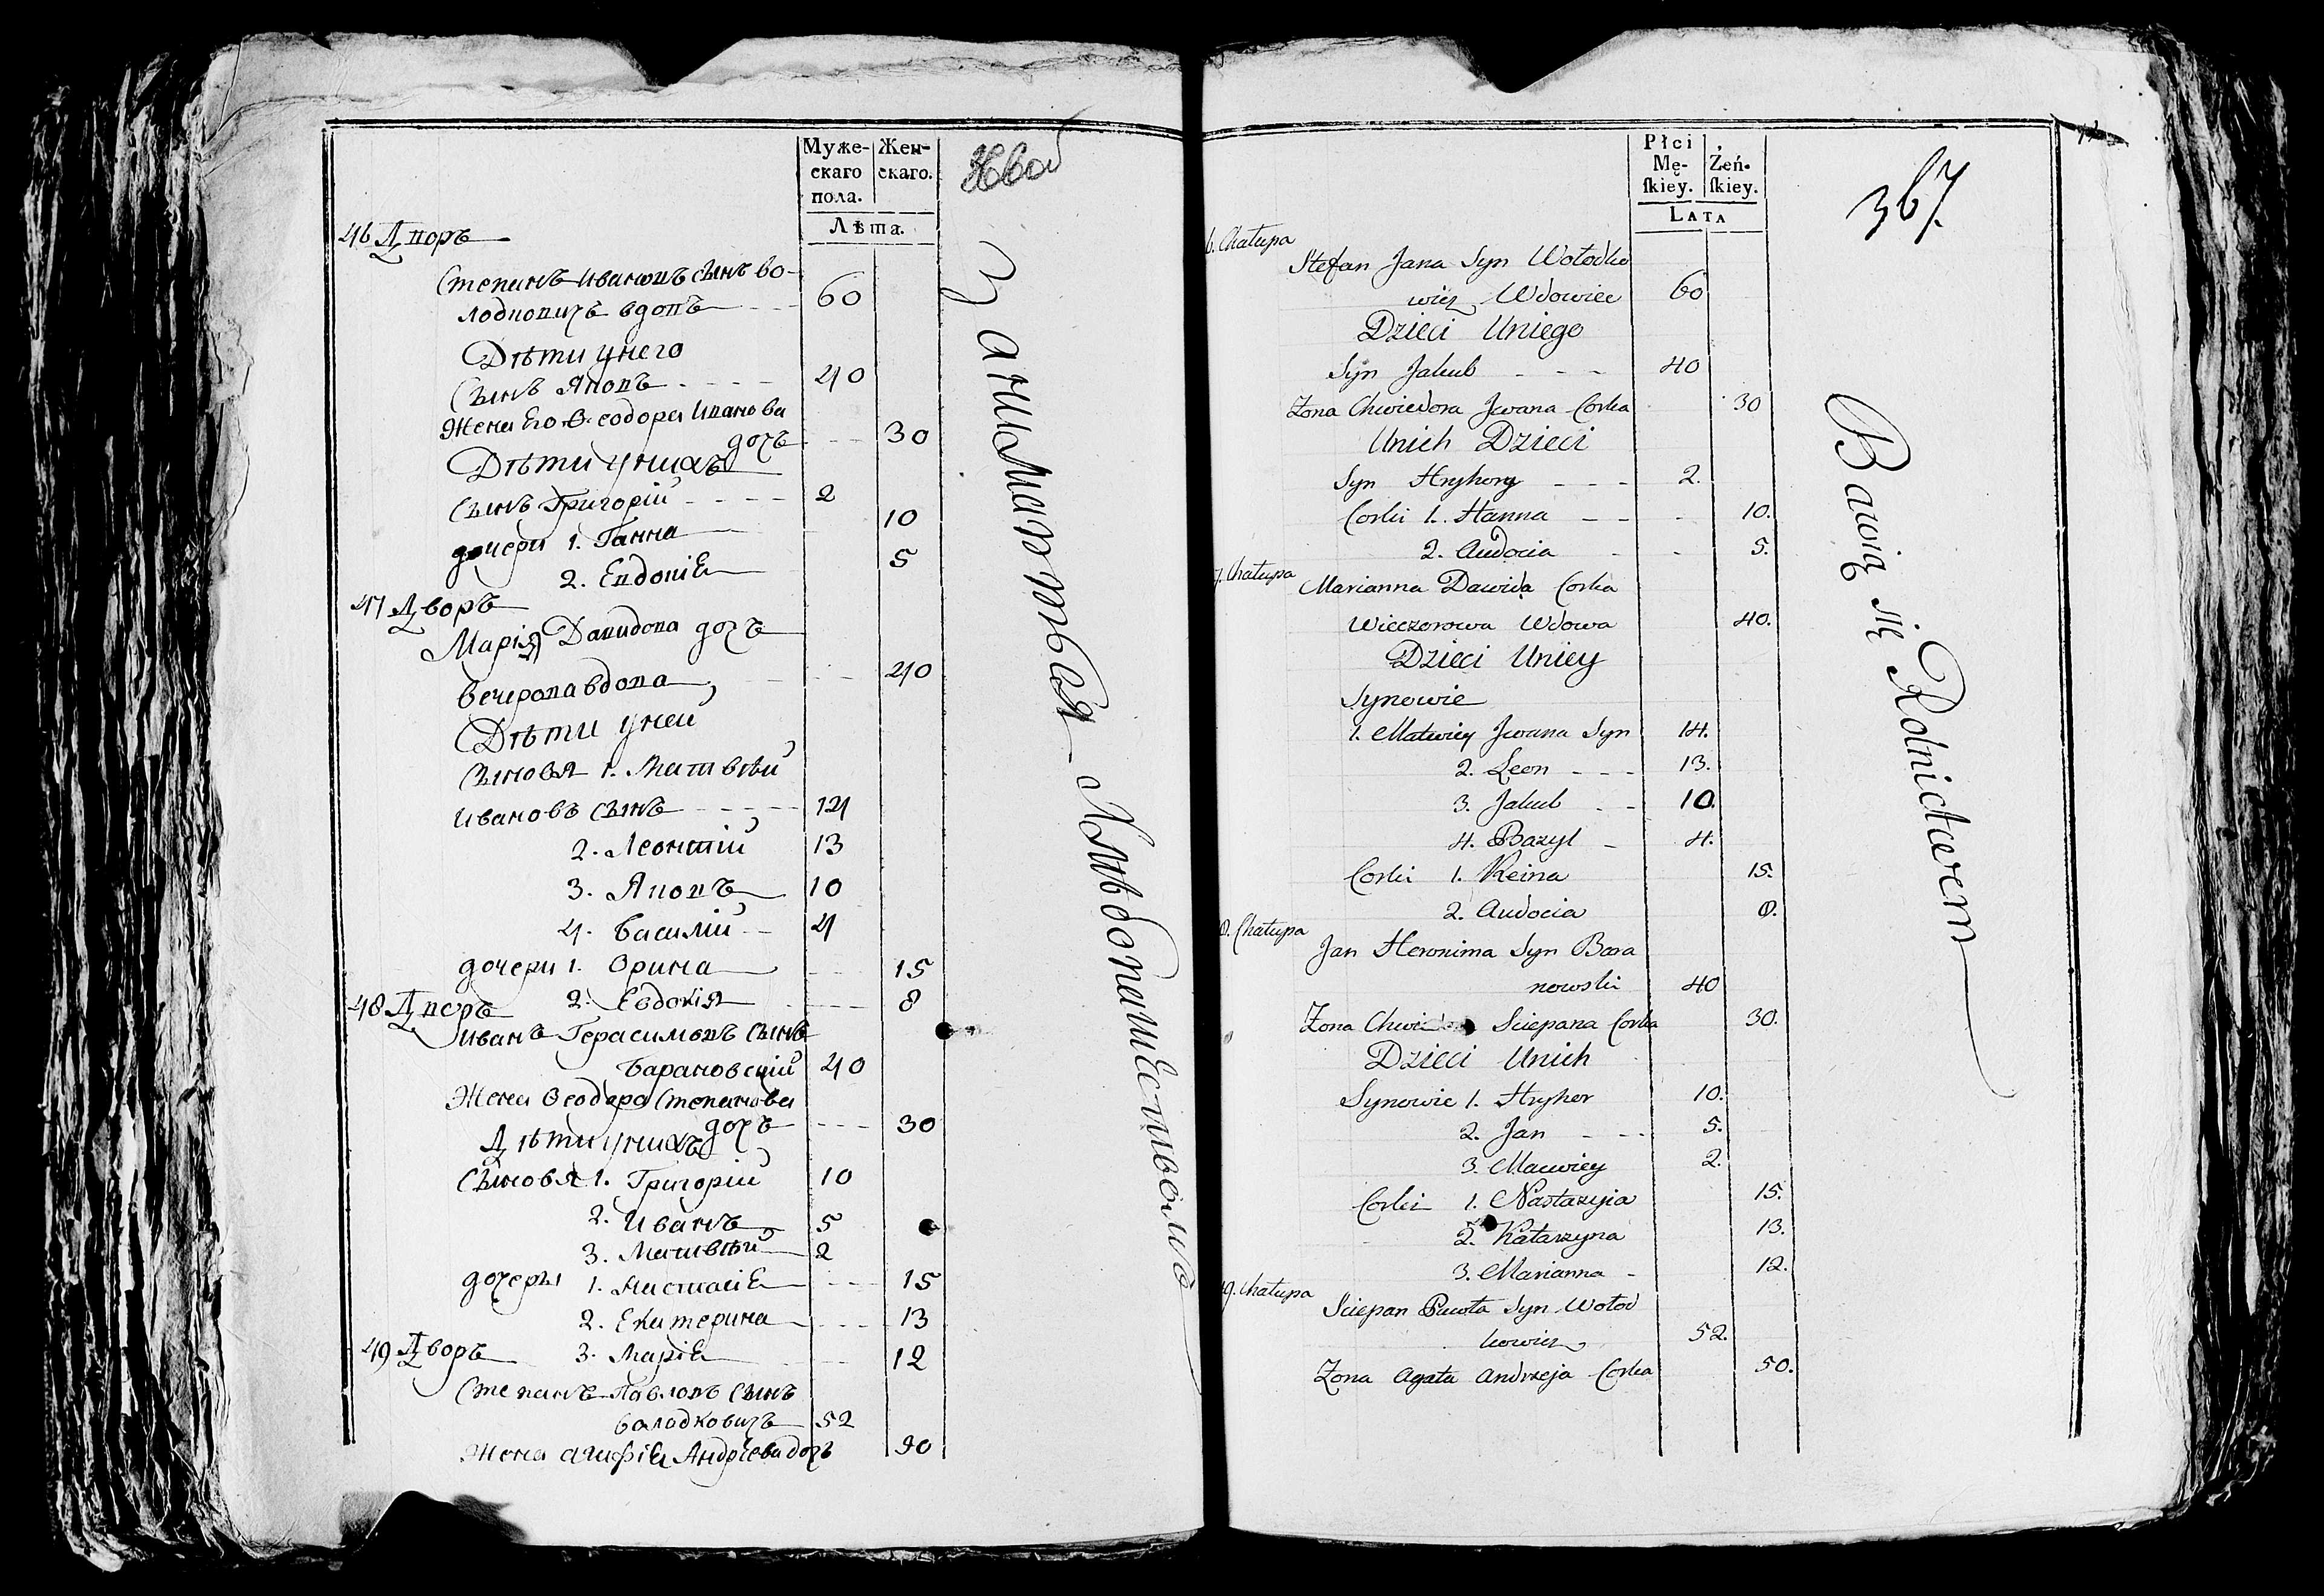 Муже-
скаго
пола.
Жен-
скаго.
Лѣта.
46 Дворъ
Степанъ Ивановъ сынъ Во-
лодковичъ вдовъ - - 60
Дѣти унего
Сынъ Яковъ - - - - 40
Жена Его Ѳеодора Иванова
дочь - - - 30
Дѣти унихъ
Сынъ Григорій - - - - 2
дочери 1. Ганна 10
2. Евдокія 5
47 Дворъ
Марія Давидова дочь
Вечерова вдова - - - - 40
Дѣти уней
Сыновья 1. Матвѣй
Ивановъ сынъ - - - - 14
2. Леонтій 13
3. Яковъ 10
4. Василій - - 4
дочери 1. Орина - - 15
2. Евдокія - - - - 8
48 Дворъ
Иванъ Герасимовъ сынъ
Барановскій 40
Жена Ѳеодора Степанова
дочь - - - 30
Дѣти унихъ
Сыновья 1. Григорій 10
2. Иванъ 5
3. Матвѣй 2
дочеры 1. Настасія - - - 15
2. Екатерина - - - - 13
3. Марія - - - - 12
49 Дворъ
Степанъ Павловъ сынъ
Володковичъ 52
Жена Андрѣева дочь 90
Занимаются Хлѣбопашествомъ
Płci
Mę-
ſkiey.
Żeń-
ſkiey.
LATA
367.
6. Chałupa
Stefan Jana Syn Wołodko
wicz Wdowiec 60
Dzieci Uniego
Syn Jakub - - - 40
Zona Chwiedora Jwana Corka 30
Unich Dzieci
Syn Hryhory - - - 2.
Corki 1. Hanna - - - 10.
2. Audocia - - 5.
7. Chałupa
Marianna Dawida Corka
Wieczorowa Wdowa 40.
Dzieci Uniey
Synowie
1. Matwiey Jwana Syn 14.
2. Leon - - - 13.
3. Jakub - - 10.
4. Bazyl - 4.
Corki 1. Reina 15.
2. Audocia 8.
8. Chałupa
Jan Heronima Syn Bara
nowski 40
Zona Sciepana Corka 30.
Dzieci Unich
Synowie 1. Hryhor 10.
2. Jan - - - 5.
3. Maciwiey 2.
Corki 1. Nastazyia 15.
2. Katarzyna 13.
3. Marianna - 12.
49. Chałupa
Sciepan Pawła Syn Wołod
kowicz 52.
Zona Agata Andrzeja Corka 50.
Bawią się Rolnictwem